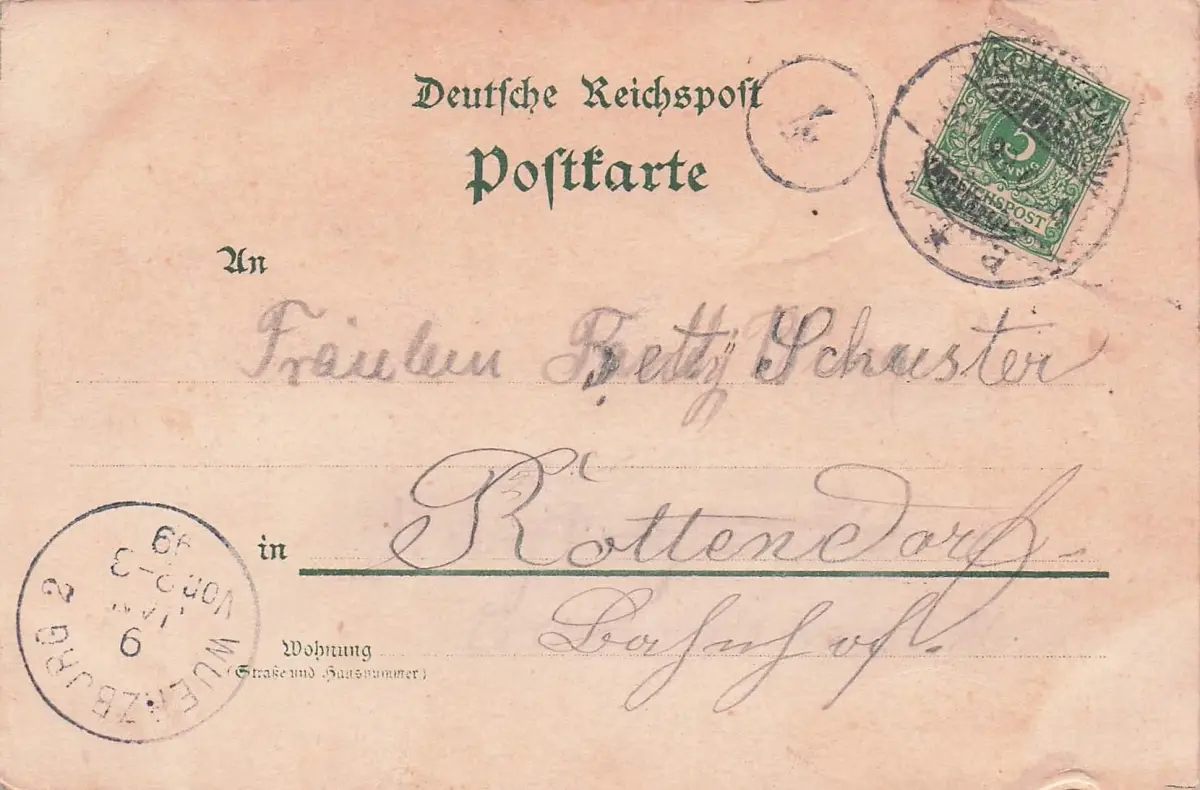 Deutsche Reichspost
Postkarte
5
REICHSPOST
An
Fräulein Betty Schuster
in Rottendorf
Bahnhof.
Wohnung
(Straße und Hausnummer)
WUERZBURG 2
9
JAN
Vor 2-3
99